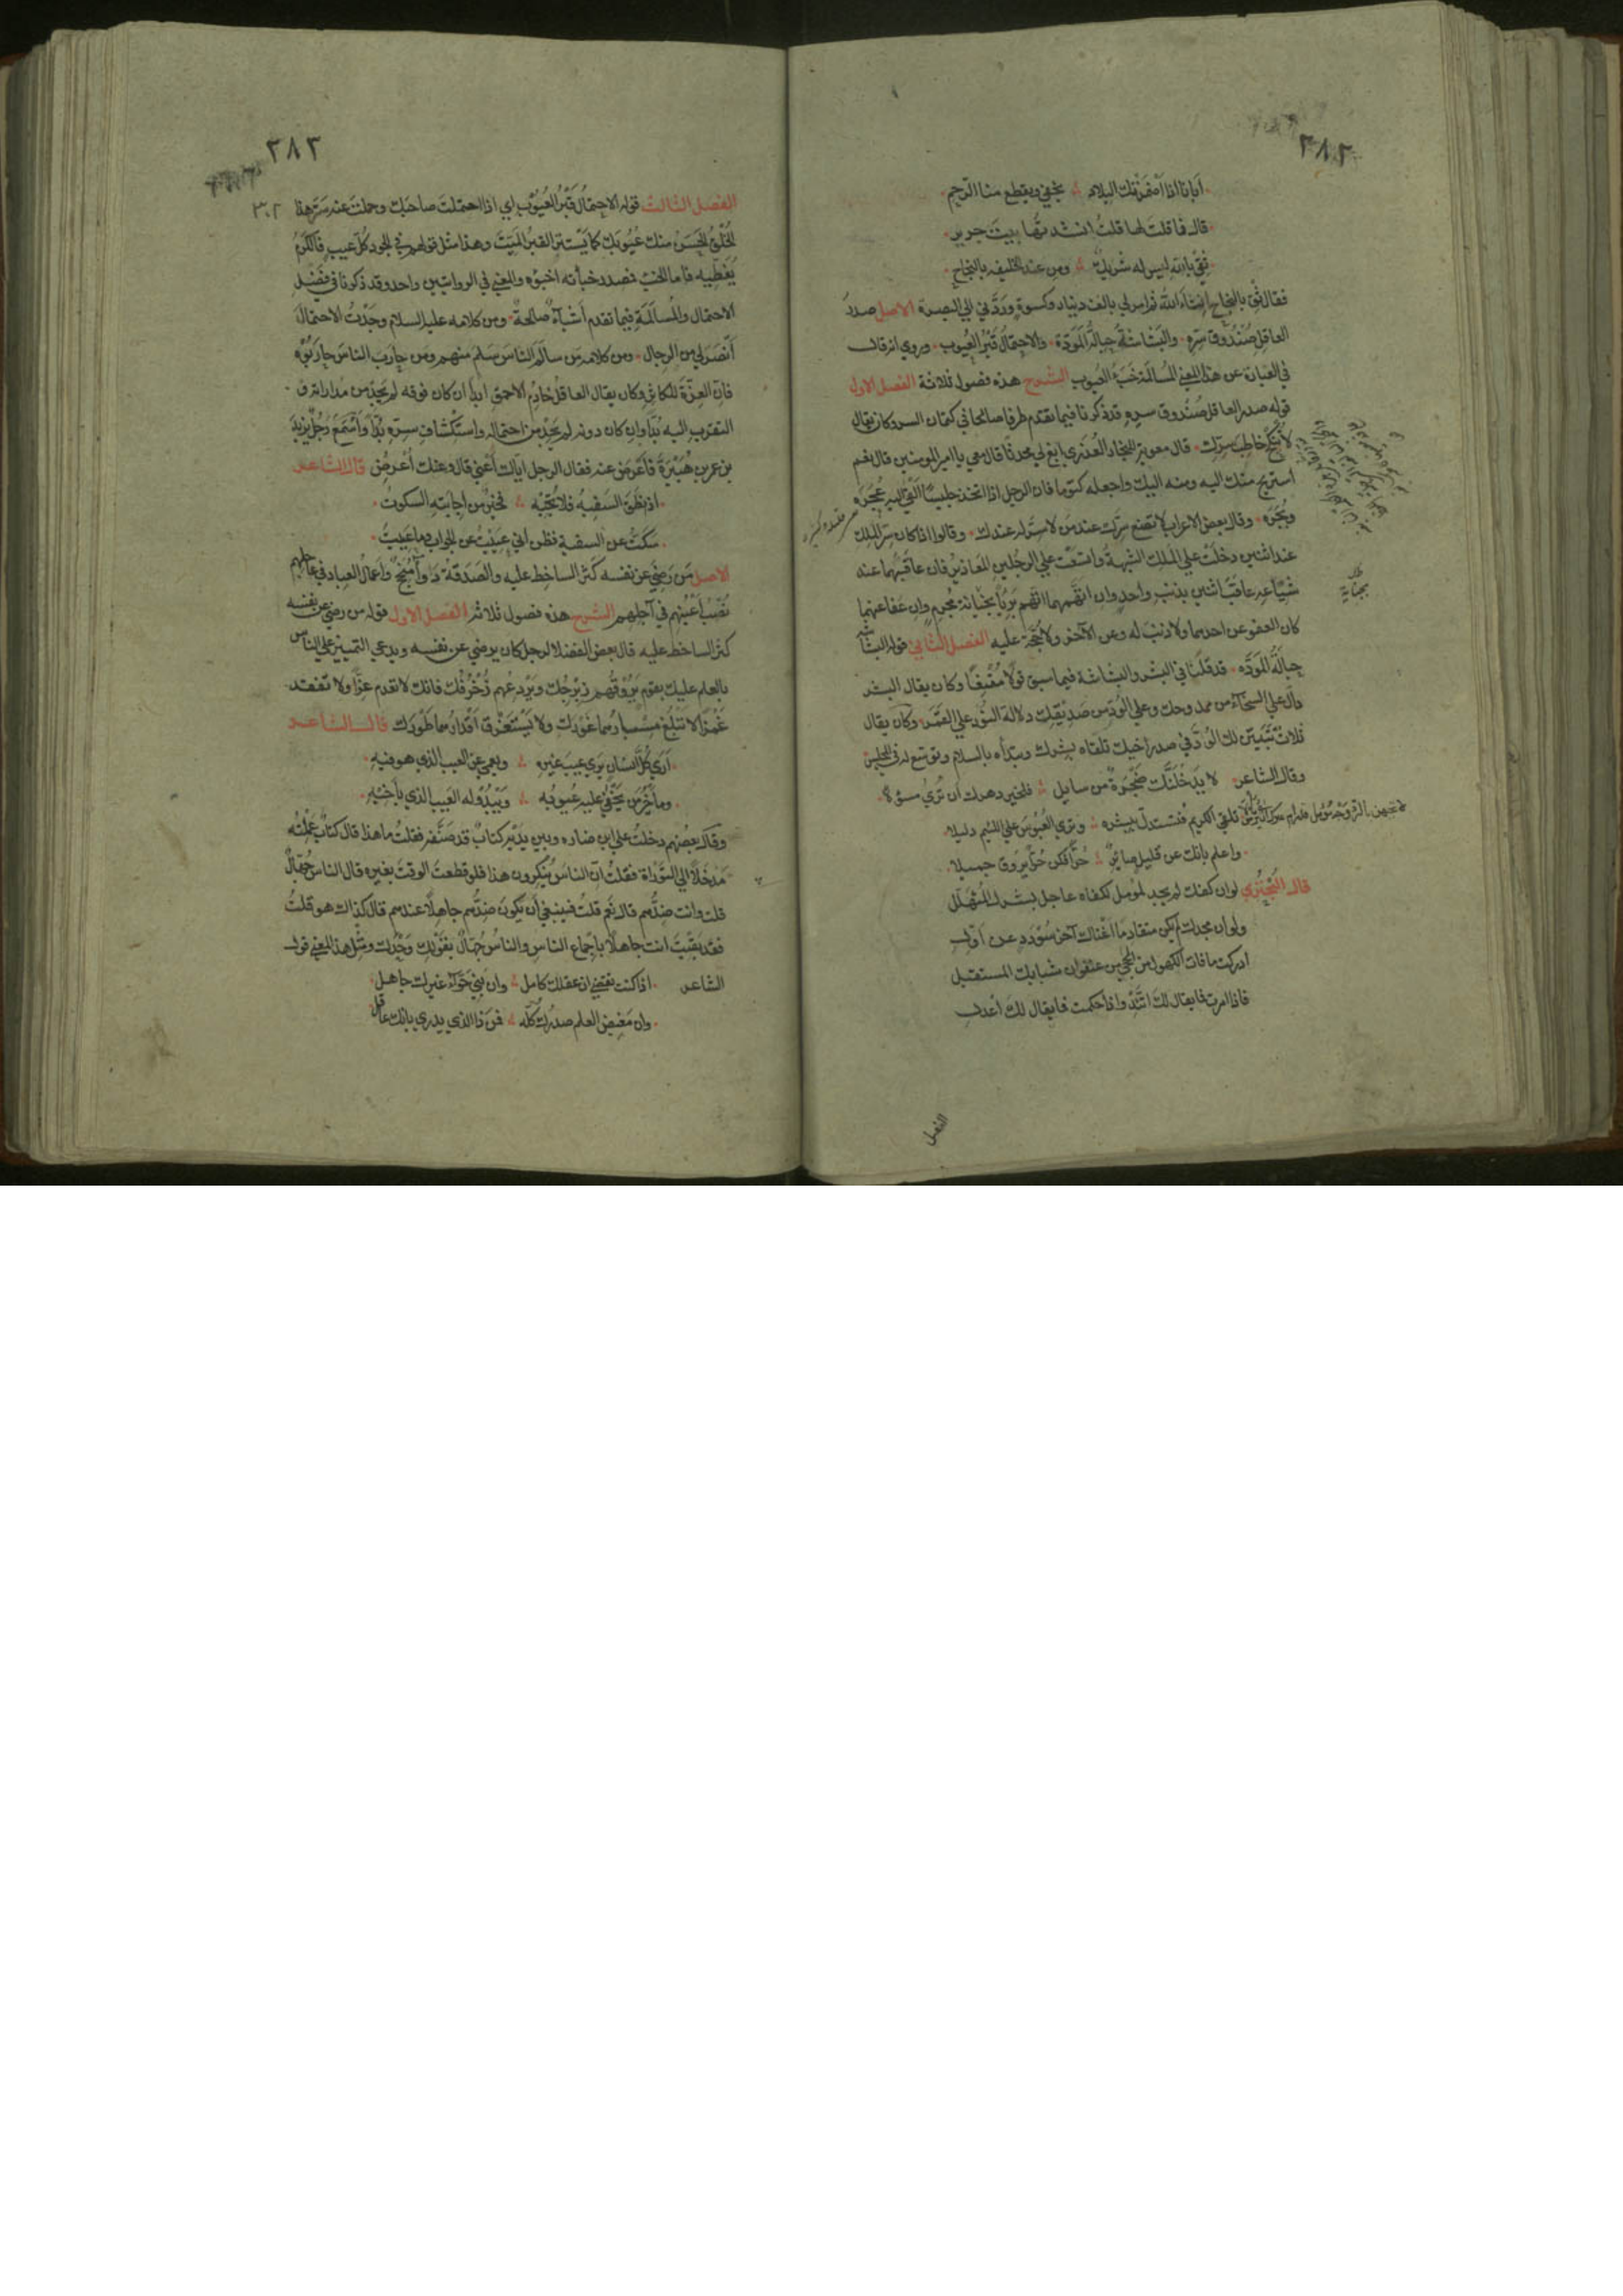 ٣٨٢
أبانا إذا أضمرتك البلاد ∴ نجفى ويقطع منا الرحم
قال فما قلت لها قلت أنشدتها بيت جرير
ثقي بالله ليس له شريك ∴ ومن عند الخليفة بالنجاح
فقال ثق بالنجاح إن شاء الله ثم امر لي بالف دينار وكسوة وردّني الي البصرة الاصل صدر
العاقل صُندوق سرّه والبَشاشةُ حِبالةُ المَودّة والاحتمالُ قَبْر العُيوب وروي انه قال
في العبارة عن هذا المعني المُسالمة خَبْءُ العيوب الشرح هذه فصول ثلاثة الفصل الاول
قوله صدر العاقل صُندوق سره قد ذكرنا فيما تقدم طرفا صالحا في كتمان السر وكان يقال
لا تُنكح خاطِبَ سرّك قال معوية للنجار العُذري ابغ لي محدثا قال معي يا امير المومنين قال نعم
استريح منك اليه ومنه اليك واجعله كتوما فان الرجل اذا اتخذ جليسا القي اليه عُجَرَه
وبُجَرَه وقال بعض الاعراب لا تضع سرّك عند من لا سرّ له عندك وقالوا اذا كان سرّ الملك
عند اثنين دخلت علي الملك الشبهة واتسعت علي الرجلين المعاذير فان عاقبهما عند
شياعه عاقب اثنين بذنب واحد وان اتهمهما اتهم بريًا بجناية مجرم وان عفا عنهما
كان العفو عن احدهما ولا ذنب له وعن الآخر ولا حُجّة عليه الفصل الثاني قوله البشاشة
حِبالةُ المودّه قد قلنا في البشر والبشاشة فيما سبق قولا مُقنِعًا وكان يقال البشر
دال علي السخاء من ممدوحك وعلي الودّ من صديقك دلالة النَّور علي الثمر وكان يقال
ثلاث تُبَيّن لك الودّ في صدر أخيك تلقاه ببشرك وتبدأه بالسلام وتوسع له في المجلس
وقال الشاعر لا يدخلنّك ضجرةٌ من سايل ∴ فلخير دهرك ان تُري مسؤلا
تلقي الكريم فتستدل ببشره ∴ وتري العُبوس علي اللئيم دليلا
واعلم بانك عن قليل صائرٌ ∴ خبرًا فكن خبرًا يروق جميلا
قال البحتري لو ان كفك لم تجد لمؤمل لكفاه عاجل بشرك المُتهلّل
ولو ان مجدك لم يكن متقادما اغناك آخر سُودَد عن اوّل
ادركت ما فات الكهول من الحجي من عنفوان شبابك المستقبل
فاذا امرت فما يقال لك اتّئد واذا حكمت فما يقال لك اعدل
الفصل
٣٨٣
٣٠٢
الفصل الثالث قوله الاحتمالُ قَبْرُ العُيُوب اي اذا احتملت صاحبك وحلمت عنه سَتَر هذا
الخُلْقُ الحَسَنُ منك عُيُوبَك كما يَستر القبرُ المَيّتَ وهذا مثل قولهم في الجود كل عيب فالكرمُ
يُغَطّيه فاما الخبء فمصدر خبأته اخبؤه والمعني في الروايتين واحد وقد ذكرنا في فَضْل
الاحتمال والمُسالَمة فيما تقدم أشياءَ صالحةً ومن كلامه عليه السلام وجَدْتُ الاحتمالَ
أنصَرَ لي من الرجال ومن كلامه من سالَمَ الناسَ سَلِمَ منهم ومن حارَب الناسَ حاربُوه
فان العِزّةَ للكاثر وكان يقال العاقل خادِمُ الاحمق ابدًا ان كان فوقه لم يجد من مداراته و
التقرب اليه بُدّا وان كان دونه لم يجد من احتماله واستكفاف شره بُدّا واسمع رجلٌ يزيد
بن عمر بن هُبَيْرة فأعرض عنه فقال الرجل اياك أعني قال وعنك أُعرِض قال الشاعر
اذا نطق السفيه فلا تُجِبْه ∴ فخير من اجابته السكوتُ
سكتُّ عن السفيه فظن اني عَيِيْتُ عن الجواب وما عَيِيتُ
الاصل مَن رَضِيَ عن نفسه كَثُر الساخط عليه والصَدَقة دواءٌ مُنْجِحٌ واعمال العباد في عاجلهم
نُصْبُ أعيُنِهم في آجلهم الشرح هذه فصول ثلاثة الفصل الاول قوله من رضي عن نفسه
كثر الساخط عليه قال بعض الفضلا لرجل كان يرضي عن نفسه ويدعي التمييز علي الناس
بالعلم عليك بقوم تَرُوقُهم زِبْرِجُك وتَرُوعهم زُخرُفُك فانك لا تعدم عزًا ولا تفقد
غُمْزًا لا تبلغ مِسبارُهما غَورَك ولا تَستغرق أقدارُهما طَورَك قال الشاعر
أري كل انسان يري عيب غيره ∴ ويعمي عن العيب الذي هو فيه
وما خيرُ من تَخفي عليه عيوبُه ∴ ويَبْدُو له العيب الذي بأخيه
وقال بعضهم دخلتُ علي ابن مناره وبين يديه كتاب قد صَنّفه فقلتُ ما هذا قال كتاب عَمِلتُه
مَدخَلا الي التَوراة فقلتُ ان الناسَ يُنكرون هذا فلو قطعتَ الوقتَ بغيره قال الناس جُهّالٌ
قلت وانت ضِدُّهم قال نعم قلتُ فينبغي أن يكون ضِدُّهم جاهلا عندهم قال كذاك هو قلتُ
فقد بَقِيتَ انت جاهلا بإجماع الناس والناسُ جُهّالٌ بقولك وَحْدَك ومثل هذا المعني قول
الشاعر اذا كنت تقضي ان عقلك كامل ∴ وان بني حوّاء غيرك جاهل
وان مَغيض العلم صدرُك كُلّه ∴ فمن ذا الذي يدري بانك عاقل